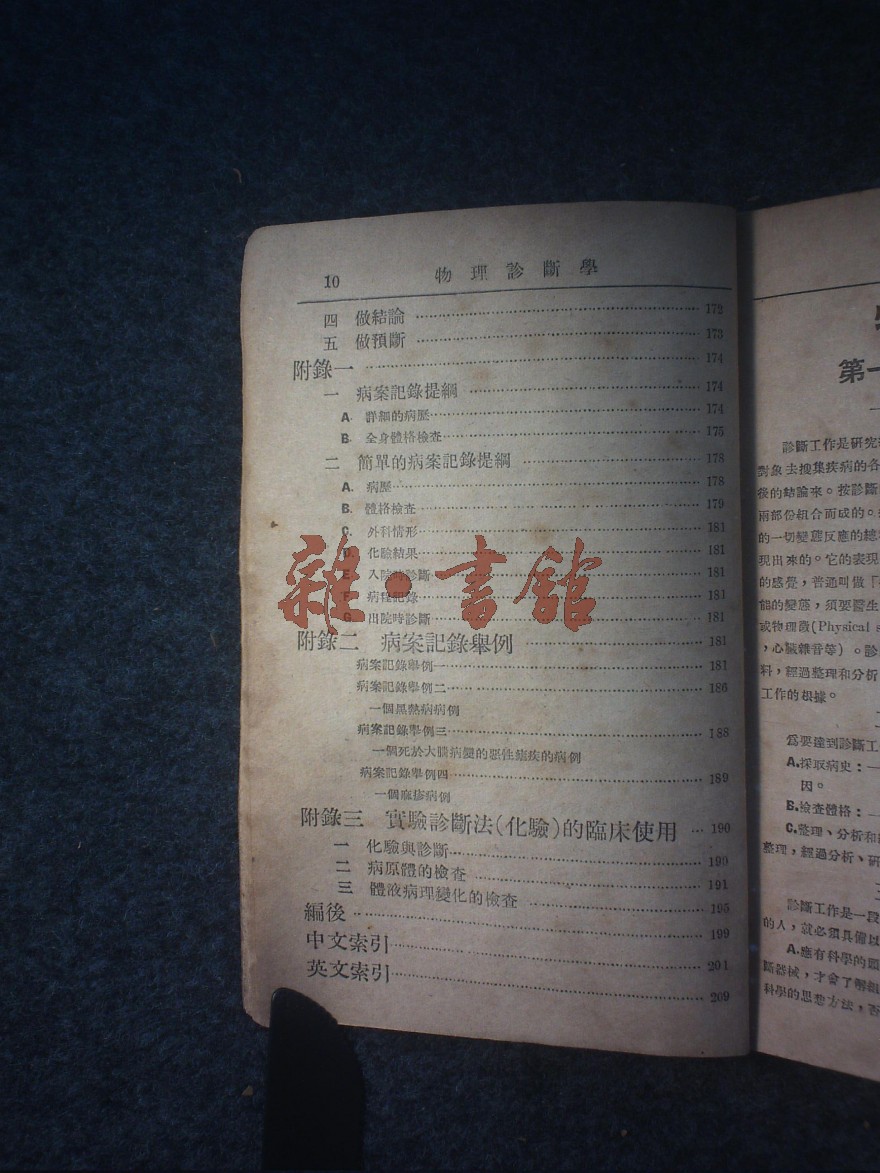 10 物理診斷學
四 做結論 172
五 做預斷 173
附錄一 174
一 病案記錄提綱 174
A. 詳細的病歷 174
B. 全身體格檢查 175
二 簡單的病案記錄提綱 178
A. 病歷 178
B. 體格檢查 179
C. 外科情形 181
D. 化驗結果 181
E. 入院時診斷 181
F. 病程記錄 181
G. 出院時診斷 181
附錄二 病案記錄舉例 181
病案記錄舉例一 181
病案記錄舉例二 186
一個黑熱病病例
病案記錄舉例三 188
一個死於大腦病變的惡性瘧疾的病例
病案記錄舉例四 189
一個麻疹病例
附錄三 實驗診斷法(化驗)的臨床使用 190
一 化驗與診斷 190
二 病原體的檢查 191
三 體液病理變化的檢查 195
編後 199
中文索引 201
英文索引 209
雜·書館
第一
診斷工作是研究
對象去搜集疾病的各
後的結論來。按診斷
兩部份組合而成的。
的一切變態反應的總
現出來的。它的表現
的感覺，普通叫做「
能的變態，須要醫生
或物理徵(Physical s
，心臟雜音等)。診
料，經過整理和分析
工作的根據。
爲要達到診斷工
A.採取病史：—
因。
B.檢查體格：—
C.整理、分析和
整理，經過分析、研
診斷工作是一段
的人，就必須具備以
A.應有科學的頭
斷器械，才會了解組
科學的思想方法，否